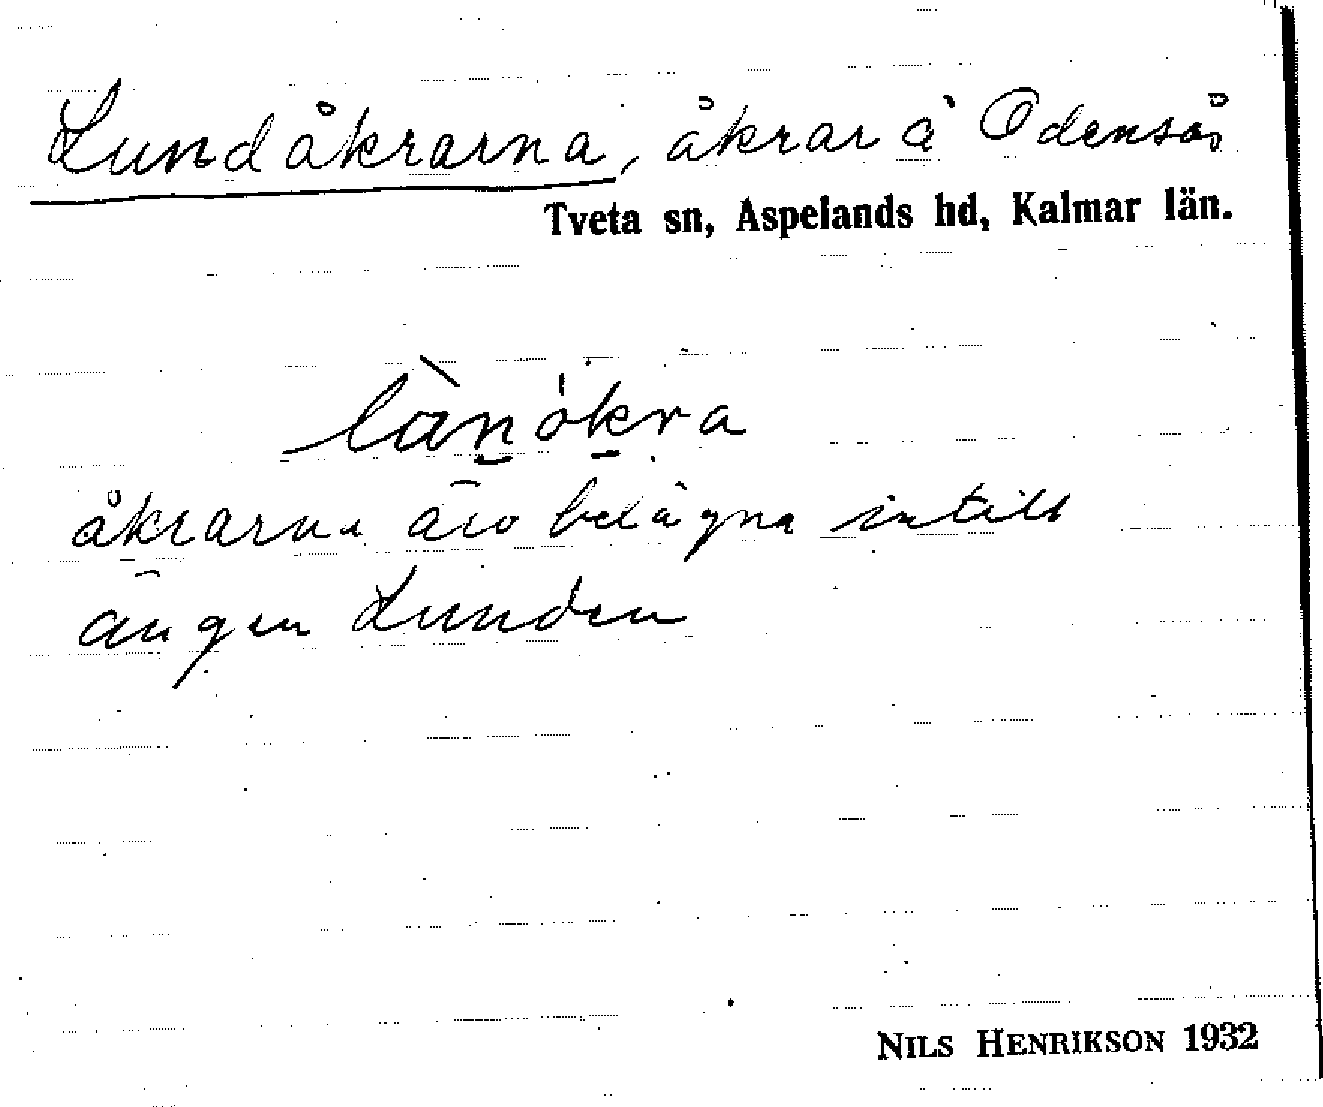 Lundåkrarna, åkrar å Odensås
Tveta sn, Aspelands hd, Kalmar län.
lànåkra
åkrarna äro belägna intill
ängen Lunden
NILS HENRIKSON 1932